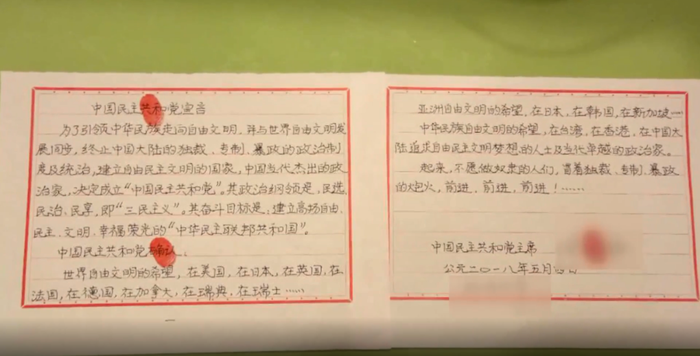 中国民主共和党宣言
为了引领中华民族走向自由文明，并与世界自由文明发
展同步，终止中国大陆的独裁、专制、暴政的政治制
度及统治，建立自由民主文明的国家，中国当代杰出的政
治家，决定成立“中国民主共和党”。其政治纲领是，民选、
民治、民享，即“三民主义”。其奋斗目标是，建立高扬自由、
民主、文明、幸福荣光的“中华民主联邦共和国”。
中国民主共和党确认：
世界自由文明的希望，在美国，在日本，在英国，在
法国，在德国，在加拿大，在瑞典，在瑞士……
亚洲自由文明的希望，在日本，在韩国，在新加坡……
中华民族自由文明的希望，在台湾，在香港，在中国大
陆追求自由民主文明梦想的人士及当代卓越的政治家。
起来，不愿做奴隶的人们，冒着独裁、专制、暴政
的炮火，前进，前进，前进！……
中国民主共和党主席
公元二〇一八年五月